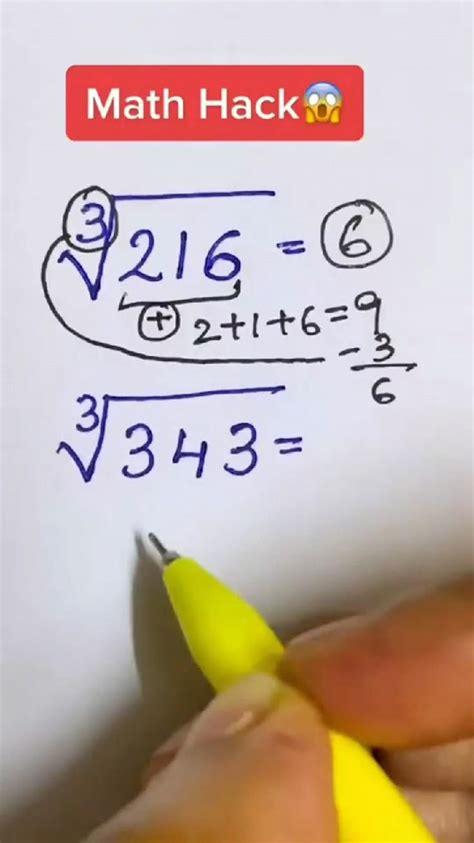 Math Hack😱
∛216 = 6
+ 2+1+6=9
- 3
6
∛343 =